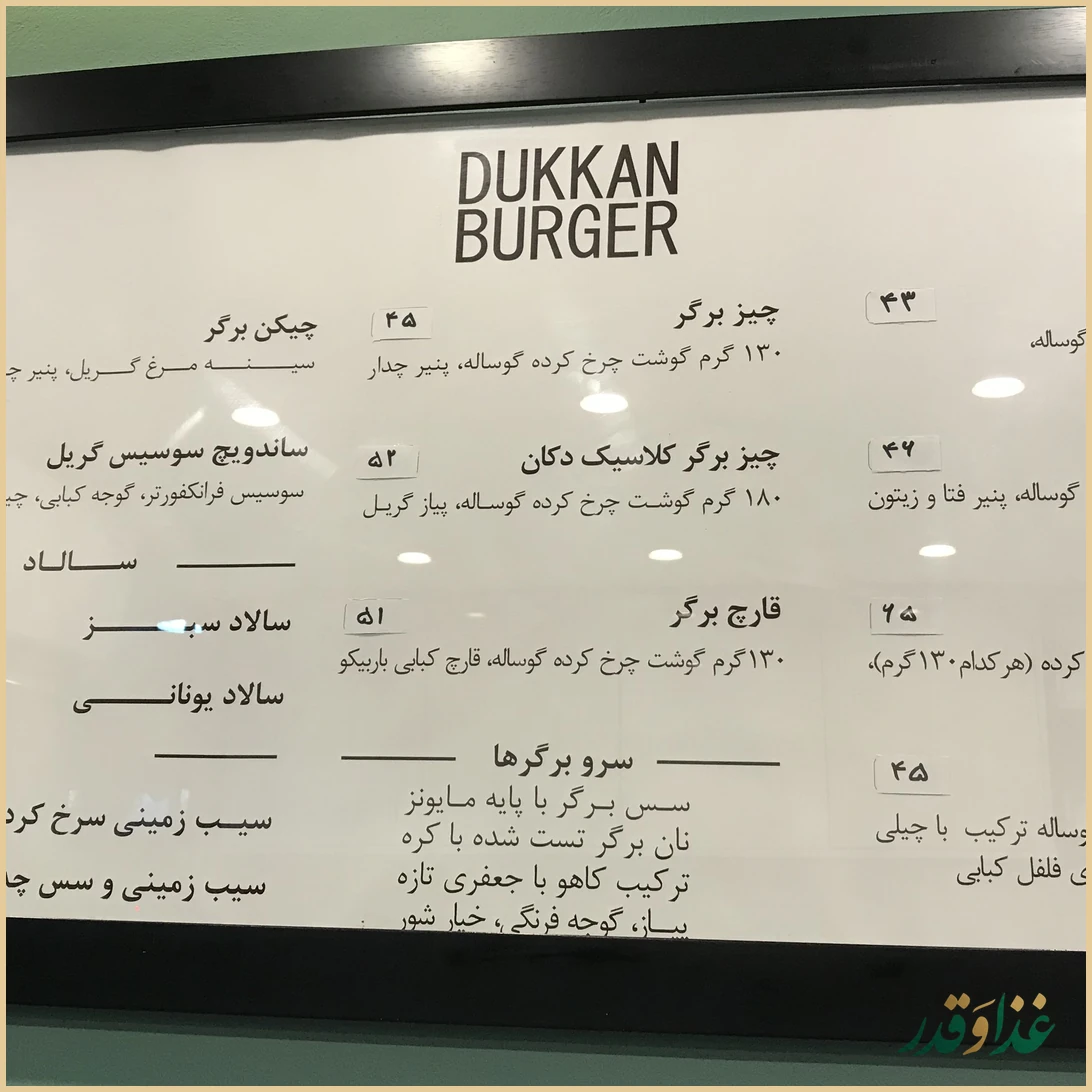 DUKKAN
BURGER
۴۳
گوساله،
۴۶
گوساله، پنیر فتا و زیتون
۶۵
کرده (هر کدام ۱۳۰ گرم)،
۴۵
وساله ترکیب با چیلی
ی فلفل کبابی
چیز برگر ۴۵
۱۳۰ گرم گوشت چرخ کرده گوساله، پنیر چدار
چیز برگر کلاسیک دکان ۵۲
۱۸۰ گرم گوشت چرخ کرده گوساله، پیاز گریل
قارچ برگر ۵۱
۱۳۰گرم گوشت چرخ کرده گوساله، قارچ کبابی باربیکو
سرو برگرها
سس برگر با پایه مایونز
نان برگر تست شده با کره
ترکیب کاهو با جعفری تازه
پیاز، گوجه فرنگی، خیار شور
چیکن برگر
سینه مرغ گریل، پنیر چ
ساندویچ سوسیس گریل
سوسیس فرانکفورتر، گوجه کبابی، چی
سالاد
سالاد سبز
سالاد یونانی
سیب زمینی سرخ کرد
سیب زمینی و سس چد
غذا و قدر